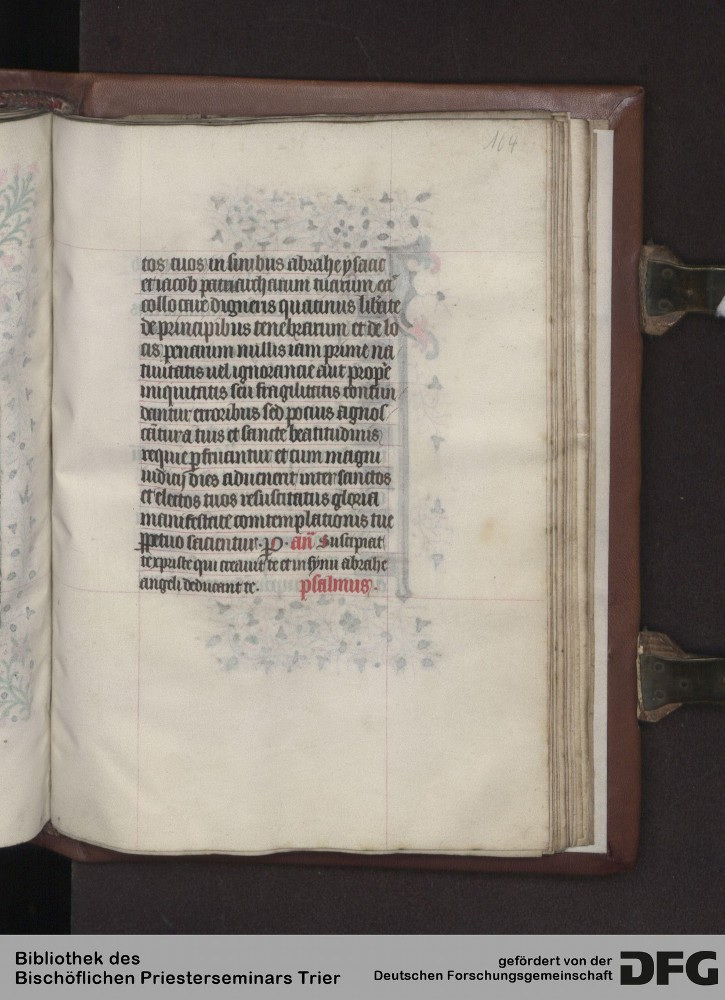 104
tos tuos in sinibus abrahe ysaac
et iacob patriarcharum tuarum ea
collocare digneris quatinus liberate
de principibus tenebrarum et de lo
cis penarum nullis iam prime na
tiuitatis uel ignorancie aut proprie
iniquitatis seu fragilitatis confun
dantur erroribus sed pocius agnos
cātur a tuis et sancte beatitudinis
requie perfruantur et cum magni
iudicij dies aduenerit inter sanctos
et electos tuos resuscitatus gloria
manifestate comtemplationis tue
perpetuo sacientur. an̄ Suscipiat
te xpriste qui creauit te et in synu abrahe
angeli deducant te. psalmus.
Bibliothek des
Bischöflichen Priesterseminars Trier
gefördert von der
Deutschen Forschungsgemeinschaft
DFG